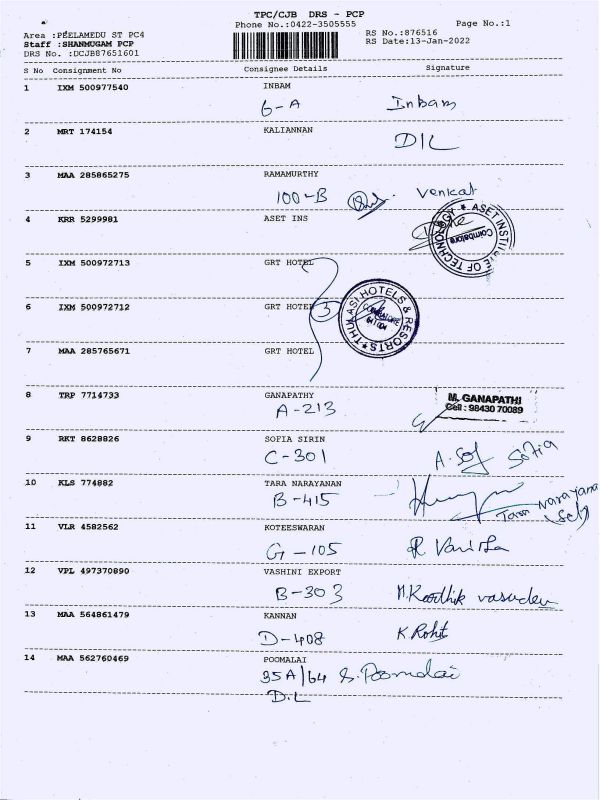 TPC/CJB DRS - PCP
Phone No.:0422-3505555 Page No.:1
Area :PEELAMEDU ST PC4 RS No.:876516
Staff :SHANMUGAM PCP RS Date:13-Jan-2022
DRS No. :DCJB87651601
S No Consignment No Consignee Details Signature
1 IXM 500977540 INBAM
6-A Inbam
2 MRT 174154 KALIANNAN
DIL
3 MAA 285865275 RAMAMURTHY
100-B Venkat
4 KRR 5299981 ASET INS
ASET INSTITUTE OF TECHNOLOGY
Coimbatore
5 IXM 500972713 GRT HOTEL
6 IXM 500972712 GRT HOTEL 3
THULASI HOTELS & RESORTS
COIMBATORE
641 004
7 MAA 285765671 GRT HOTEL
8 TRP 7714733 GANAPATHY
A-213
M. GANAPATHI
Cell : 98430 70089
9 RKT 8628826 SOFIA SIRIN
C-301 A. Sof Sofia
10 KLS 774882 TARA NARAYANAN
B-415 Tara Narayana
(Self)
11 VLR 4582562 KOTEESWARAN
G-105 R Vanitha
12 VPL 497370890 VASHINI EXPORT
B-303 M. Karthik vasudev
13 MAA 564861479 KANNAN
D-408 K. Rohit
14 MAA 562760469 POOMALAI
35A/64 S. Poomalai
D.L